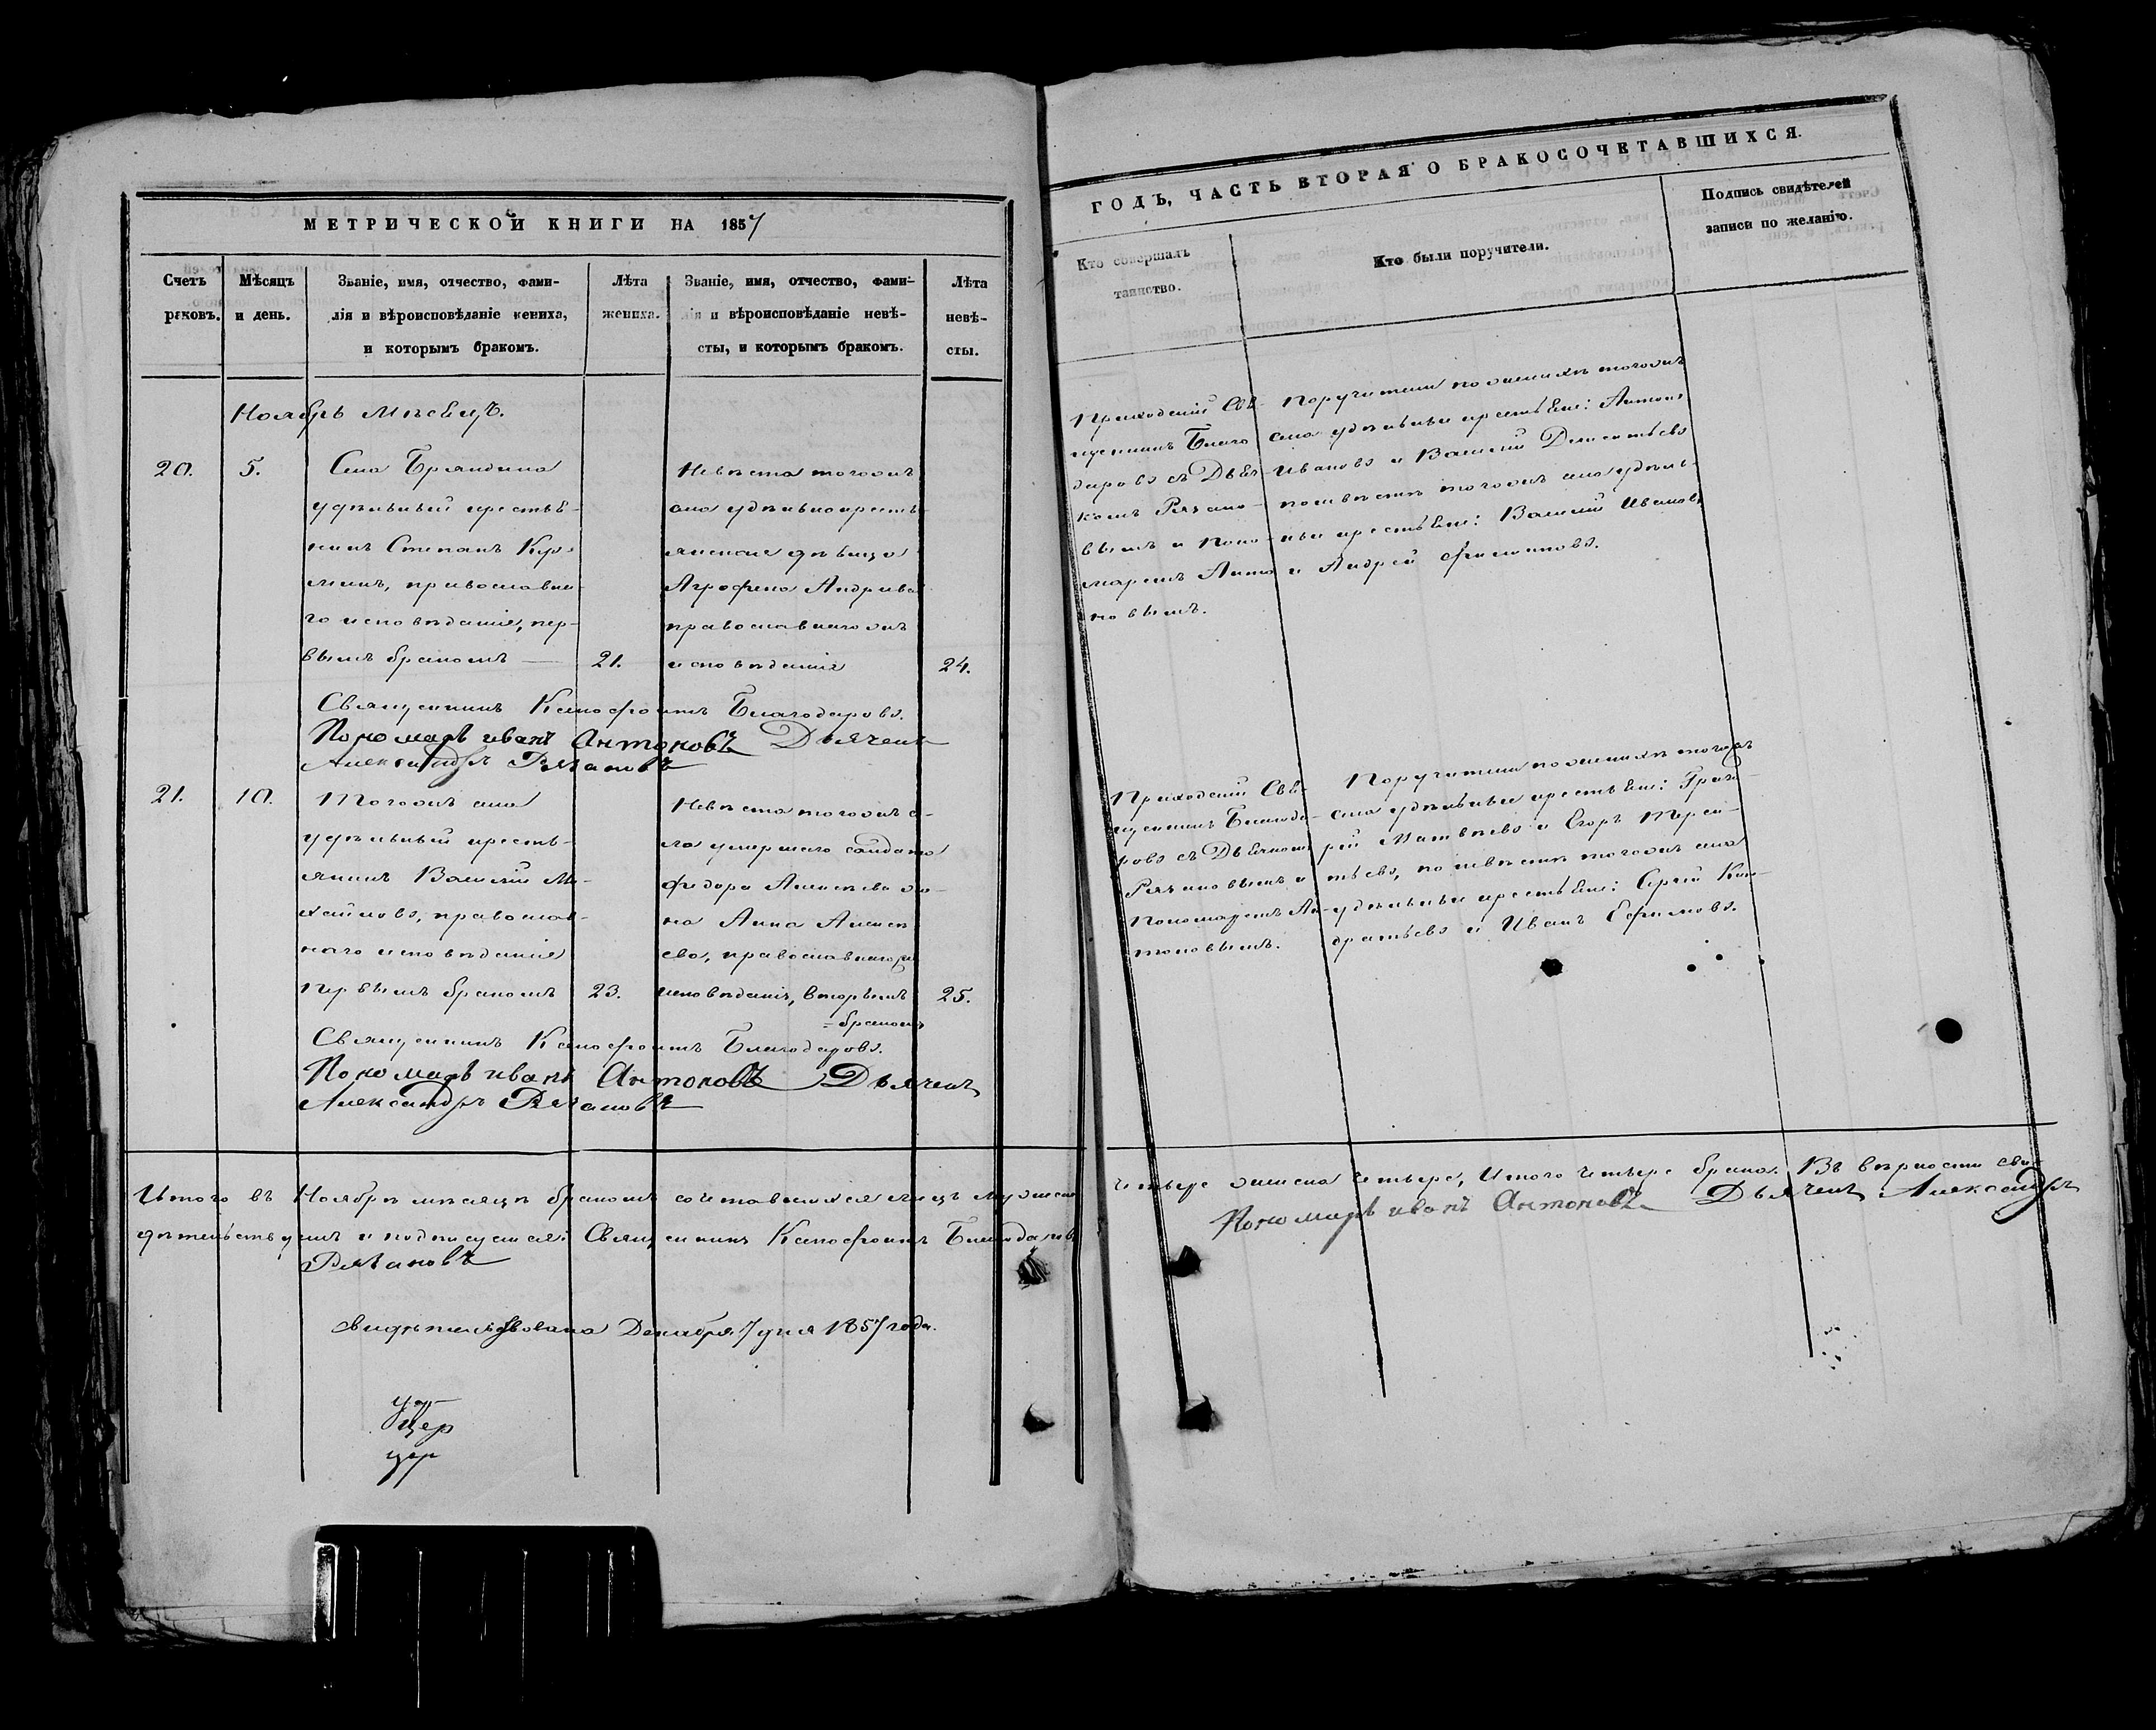 МЕТРИЧЕСКОЙ КНИГИ НА 1857
Счетъ
раковъ.
Мѣсяцъ
и день.
Званіе, имя, отчество, фами-
лія и вѣроисповѣданіе жениха,
и которымъ бракомъ.
Лѣта
жениха.
Званіе, имя, отчество, фами-
лія и вѣроисповѣданіе невѣ-
сты, и которымъ бракомъ.
Лѣта
невѣ-
сты.
Ноябрь мѣсяцъ.
20.
5.
Села Бряндина
удѣльный крестья-
нинъ Степанъ Кузь-
минъ, православна-
го исповѣданія, пер-
вымъ бракомъ
21.
Невѣста тогожъ
села удѣльнокресть-
янская дѣвица
Агрофена Андрѣева
православнагожъ
исповѣданія
24.
Священникъ Ксенофонтъ Благодаровъ.
Пономарь иванъ Антоновъ Дьячекъ
Александръ Рязановъ
21.
10.
Тогожъ села
удѣльный кресть-
янинъ Василій Ми-
хайловъ, православ-
наго исповѣданія
первымъ бракомъ
23.
Невѣста тогожъ се-
ла умершаго солдата
Федора Алексѣева же-
на Анна Алексѣ
ева, православнагожъ
исповѣданія, вторымъ
=бракомъ
25.
Священникъ Ксенофонтъ Благодаровъ.
Пономарь иванъ Антоновъ Дьячекъ
Александръ Рязановъ
Итого въ Ноябрѣ мѣсяцѣ бракомъ сочетавшихся лицъ мужеска
дѣтельствуемъ и подписуемся: Священникъ Ксенофонтъ Благодаровъ
Рязановъ
Свидѣтельствована Декабря 7 дня 1857 года.
ГОДЪ, ЧАСТЬ ВТОРАЯ О БРАКОСОЧЕТАВШИХСЯ.
Кто совершалъ
таинство.
Кто были поручители.
Подпись свидѣтелей
записи по желанію.
Приходскій Свя-
щенникъ Благо
даровъ съ Дьяч-
комъ Рязано-
вымъ и Поно-
маремъ Анто
новымъ.
Поручители по женихѣ тогожъ
села удѣльные крестьяне: Антонъ
Ивановъ и Василій Дементьевъ
по невѣстѣ тогожъ села удѣль-
ные крестьяне: Василій Ивановъ
и Андрей Филиповъ.
Приходскій Свя-
щенникъ Благода-
ровъ съ Дьячкомъ
Рязановымъ и
Пономаремъ Ан-
тоновымъ.
Поручители по женихѣ тогожъ
села удѣльные крестьяне: Григо-
рій Матвѣевъ и Егоръ Терен-
тьевъ, по невѣстѣ тогожъ села
удѣльные крестьяне: Сергей Кон-
дратьевъ и Иванъ Ефимовъ.
четверо женска четверо, Итого четыре брака. Въ вѣрности сви-
Пономарь иванъ Антоновъ Дьячекъ Александръ